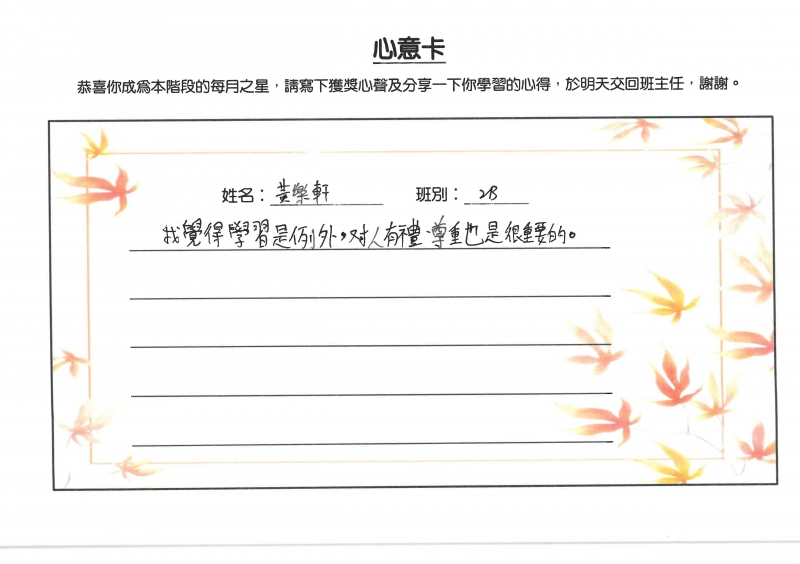 心意卡
恭喜你成為本階段的每月之星，請寫下獲獎心聲及分享一下你學習的心得，於明天交回班主任，謝謝。
姓名：黃樂軒 班別：2B
我覺得學習是例外，对人有禮、尊重也是很重要的。